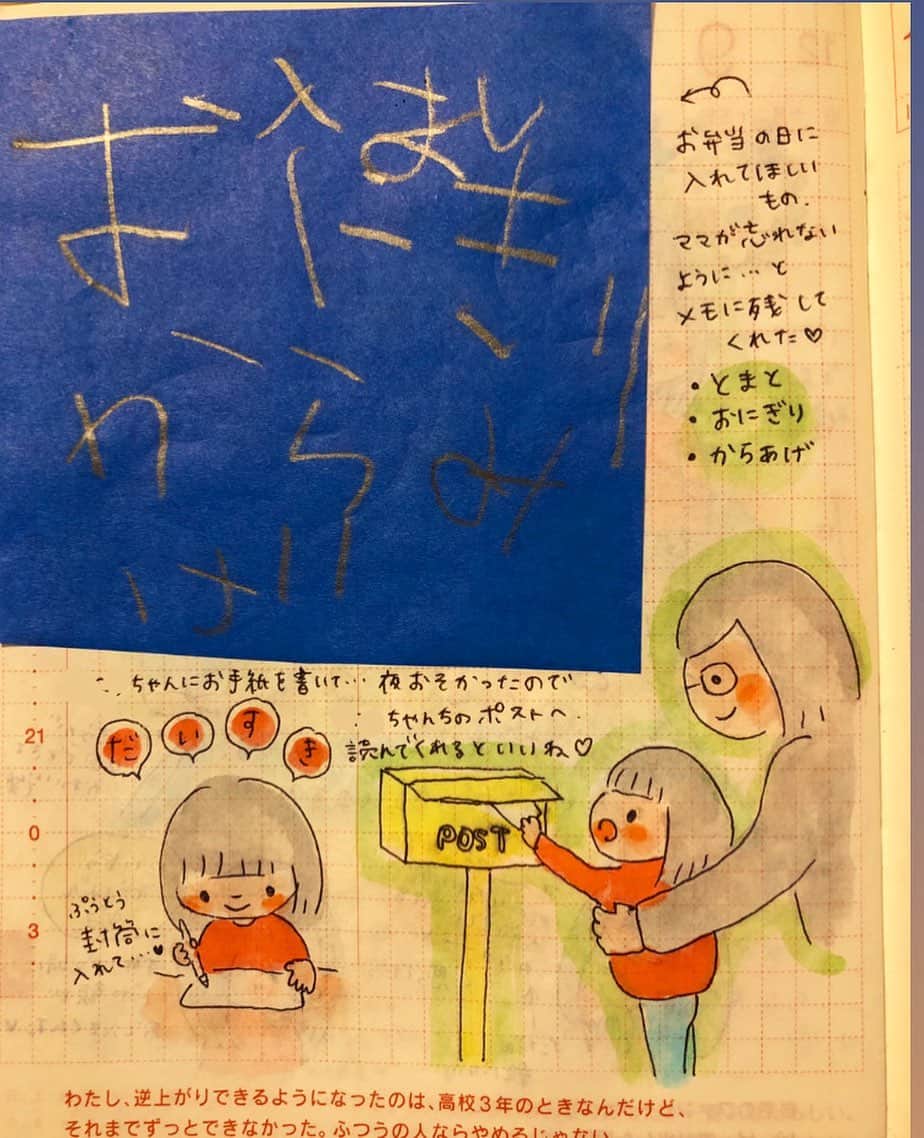 とまと
おにぎり
からあ
げ
お弁当の日に
入れてほしい
もの.
ママが忘れない
ように…と
メモに残して
くれた♡
・とまと
・おにぎり
・からあげ
ちゃんにお手紙を書いて… 夜おそかったので
ちゃんちのポストへ.
読んでくれるといいね♡
だいすき
POST
ふうとう
封筒に
入れて…♥
21
0
3
わたし、逆上がりできるようになったのは、高校3年のときなんだけど、
それまでずっとできなかった。ふつうの人ならやめるじゃない